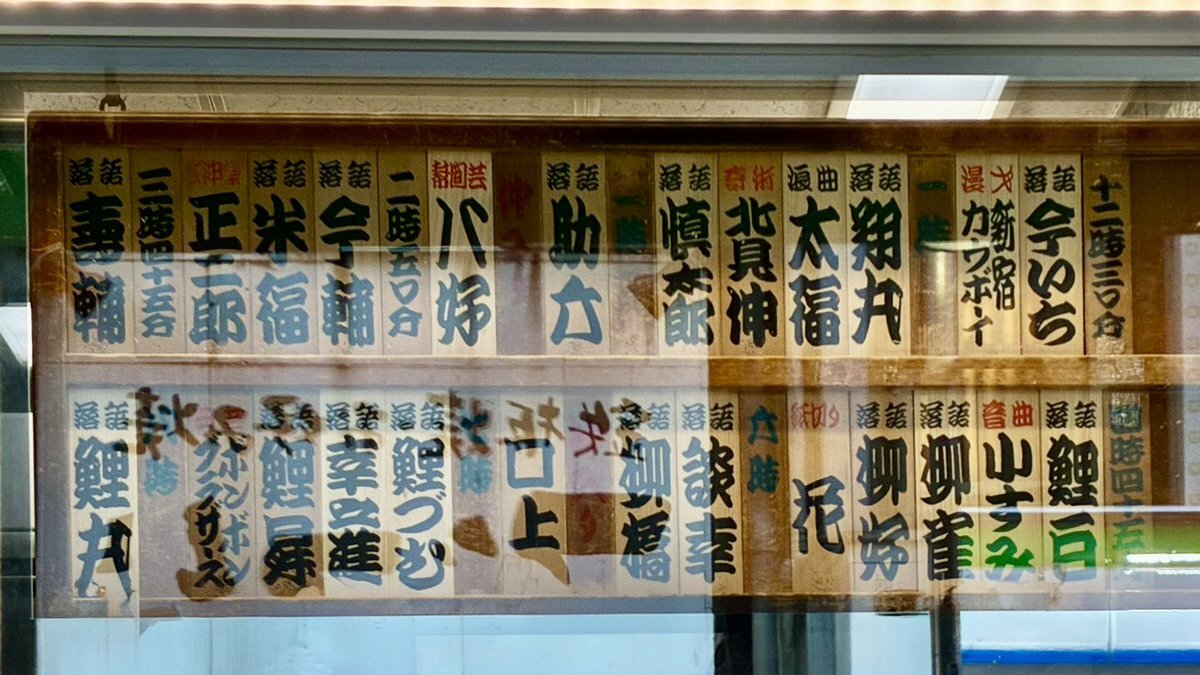 十二時三〇分
落語 今いち
漫才 新宿カウボーイ
一時
落語 翔丸
浪曲 太福
奇術 北見伸
落語 慎太郎
落語 助六
幇間芸 八好
二時五〇分
落語 今輔
落語 米福
正二郎
三時四十五分
落語 壽輔
四時四十五分
落語
音曲 小すみ
落語 柳雀
落語 柳好
紙切り 花
六時
落語 談幸
落語 柳橋
口上
落語 鯉づむ
落語 幸之進
落語 鯉昇
ボンボンブラザース
落語 鯉丸